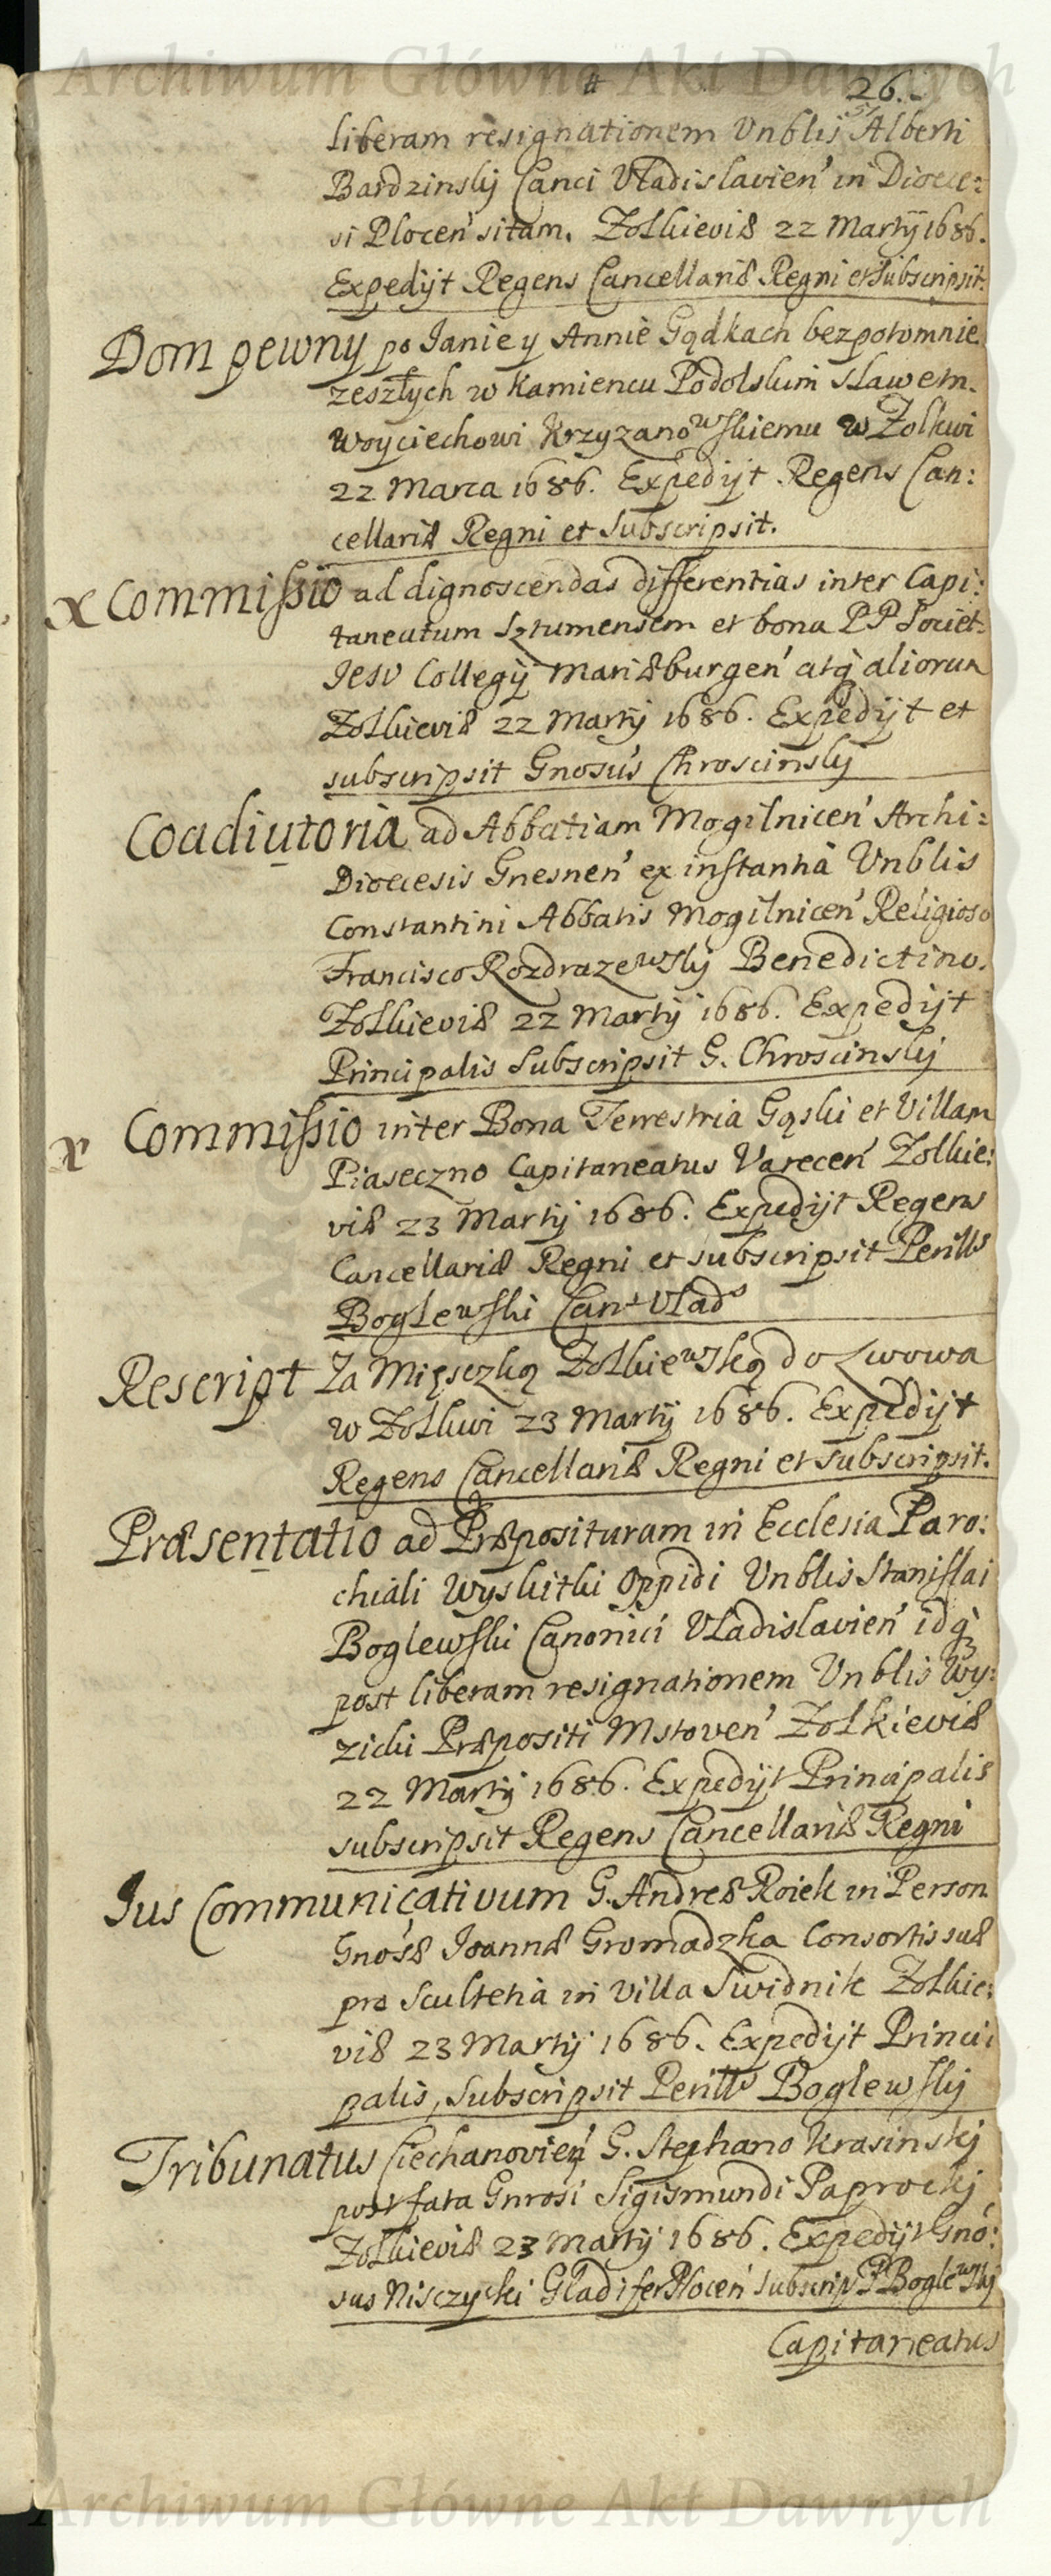 Archiwum Główne Akt Dawnych
# 26.
liberam resignationem Vnblis Alberti
Bardzinskj Canci Vladislavien' in Dioece:
si Plocen' sitam. Zolkieviæ 22 Martij 1686.
Expedijt Regens Cancellariæ Regni et Subscripsit.
Dom pewny po Janie y Annie Gądkach bezpotomnie
zeszłych w Kamiencu Podolskim sławetn.
Woyciechowi Krzyzanowskiemu w Zolkwi
22 Marca 1686. Expedijt Regens Can:
cellariæ Regni et Subscripsit.
x Commissio ad dignoscendas differentias inter Capi:
taneatum Sztumensem et bona PP Societ:
Jesu Collegij Mariæburgen' atq aliorum
Zolkieviæ 22 Martij 1686. Expedijt et
subscripsit Gnosus Chroscinskj
Coadiutoria ad Abbatiam Mogilnicen' Archi:
Dioecesis Gnesnen' ex instantia Vnblis
Constantini Abbatis Mogilnicen' Religioso
Francisco Rozdrazewskj Benedictino.
Zolkieviæ 22 Martij 1686. Expedijt
Principalis Subscripsit G. Chroscinskj
x Commissio inter Bona Terrestria Gąski et Villam
Piaseczno Capitaneatus Varecen' Zolkie:
viæ 23 Martij 1686. Expedijt Regens
Cancellariæ Regni et subscripsit Perills
Boglewski Can: Vlads
Rescript Za Mięsczką Zolkiewską do Lwowa
w Zolkwi 23 Martij 1686. Expedijt
Regens Cancellariæ Regni et subscripsit.
Præsentatio ad Præposituram in Ecclesia Paro:
chiali Wyskitki Oppidi Vnblis Stanislai
Boglewski Canonici Vladislavien' idq
post liberam resignationem Vnblis Wy:
zicki Præpositi Mstoven' Zolkieviæ
22 Martij 1686. Expedijt Principalis
subscripsit Regens Cancellariæ Regni
Jus Communicativum G. Andreæ Roiek in Person
Gnosæ Joannæ Gromadzka Consortis suæ
pro Scultetia in Villa Swidnik Zolkie:
viæ 23 Martij 1686. Expedijt Princi:
palis, Subscripsit Perills Boglewskj
Tribunatus Ciechanovien' G. Stephano Krasinskj
post fata Gnrosi Sigismundi Paprockj
Zolkieviæ 23 Martij 1686. Expedijt Gno:
sus Nisczycki Gladifer Plocen' subscrip P Boglewskj
Capitaneatus
Archiwum Główne Akt Dawnych